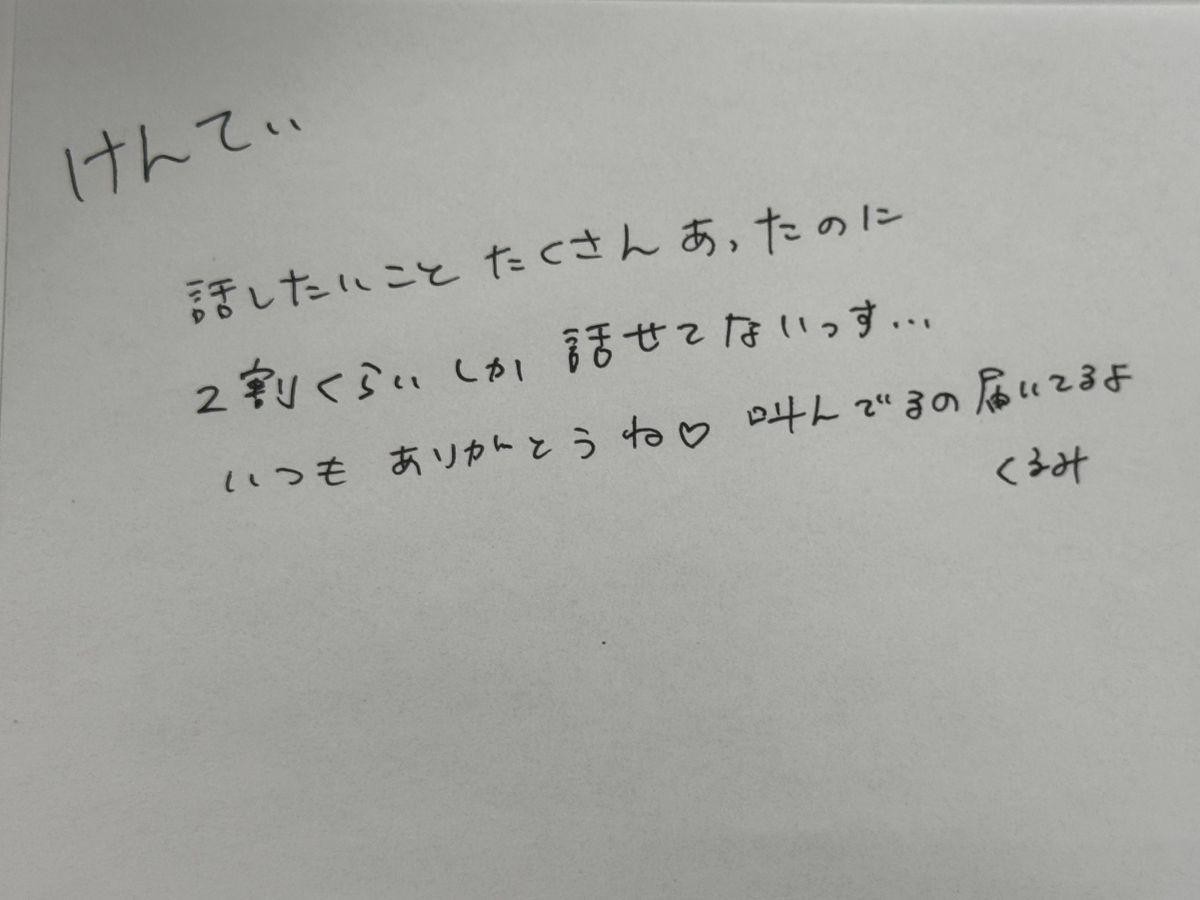 けんてぃ
話したいこと たくさん あったのに
2割くらい しか 話せてないっす...
いつも ありがとうね♡ 叫んでるの届いてるよ
くるみ